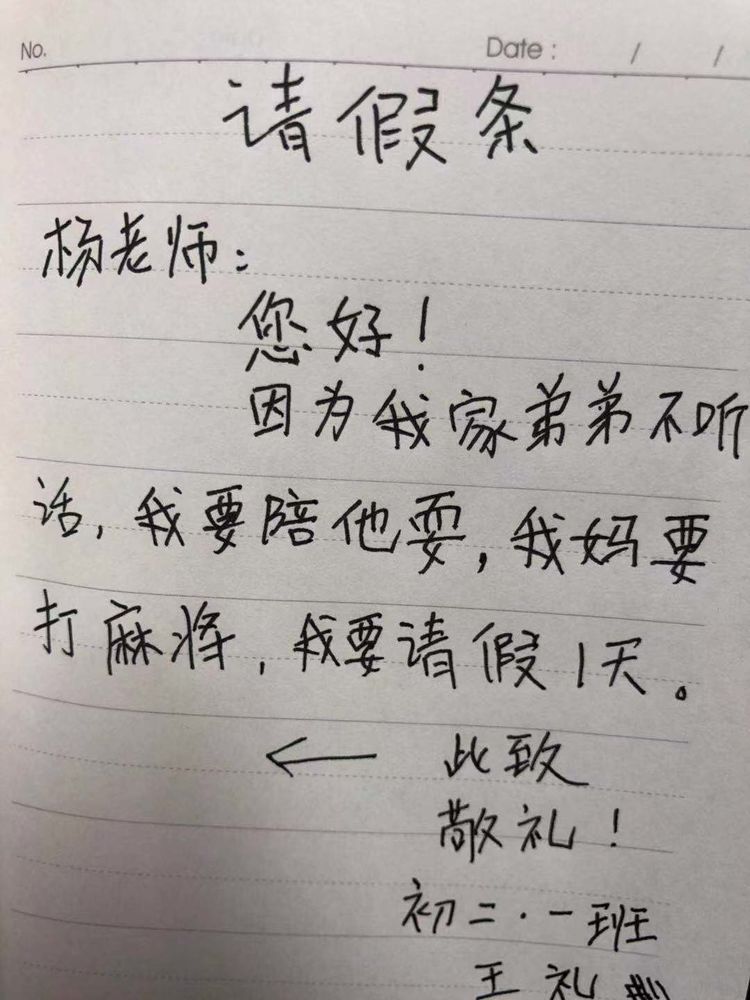 No. Date : / /
请假条
杨老师:
您好!
因为我家弟弟不听
话,我要陪他耍,我妈要
打麻将,我要请假1天。
← 此致
敬礼!
初二·一班
王礼